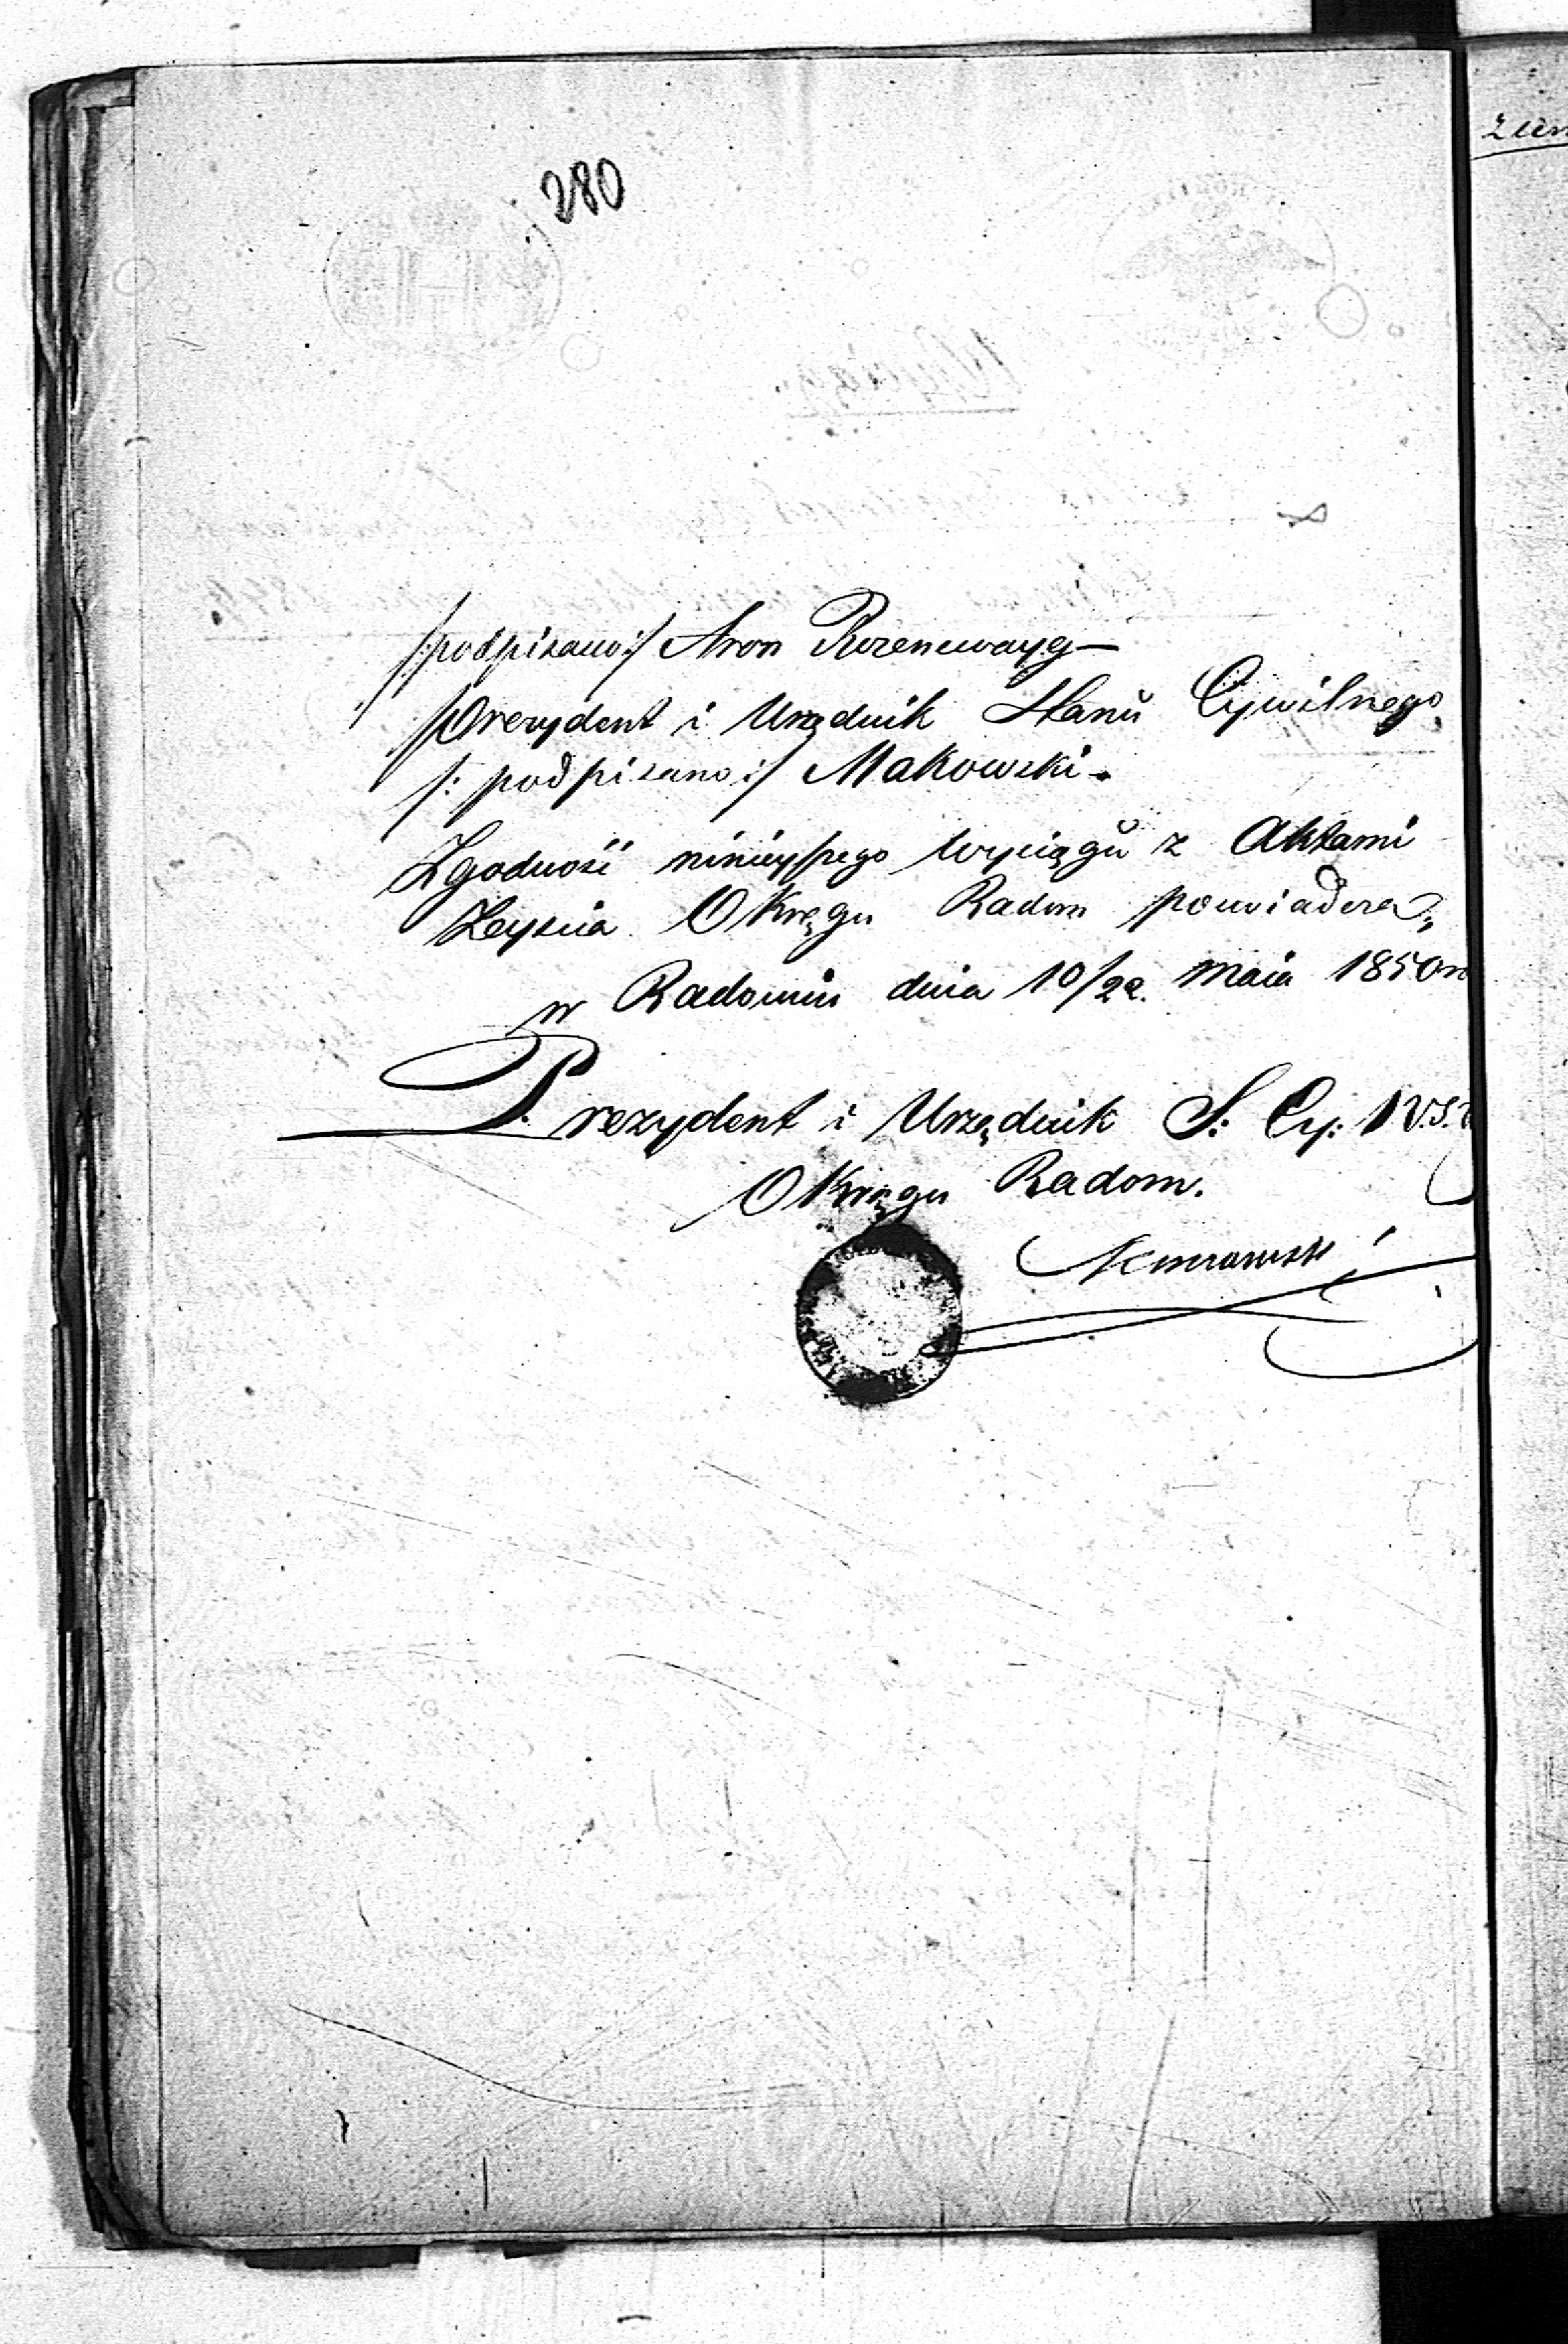 280
/:podpisano:/ Aron Rozenwayg—
Prezydent i Urzędnik Stanu Cywilnego
/: podpisano:/ Makowski.
Zgodność ninieyszego wyciągu z Aktami
Zeyscia Okręgu Radom poswiadcza,
w Radomiu dnia 10/22. Maia 1850
Prezydent i Urzędnik S: Cy:
Okręgu Radom.